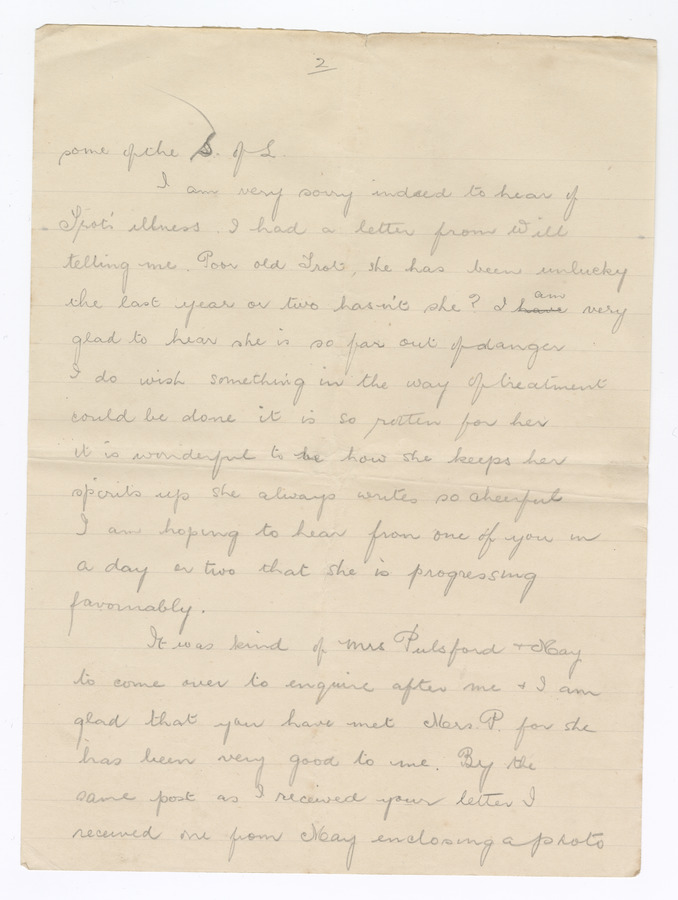 2
some of the S. of L.
I am very sorry indeed to hear of
Trot's illness. I had a letter from Will
telling me. Poor old Trot, she has been unlucky
the last year or two hasn't she? I have am very
glad to hear she is so far out of danger
I do wish something in the way of treatment
could be done it is so rotten for her
it is wonderful to be how she keeps her
spirits up she always writes so cheerful
I am hoping to hear from one of you in
a day or two that she is progressing
favourably.
It was kind of Mrs Pulsford + May
to come over to enquire after me + I am
glad that you have met Mrs P. for she
has been very good to me. By the
same post as I received your letter I
received one from May enclosing a photo